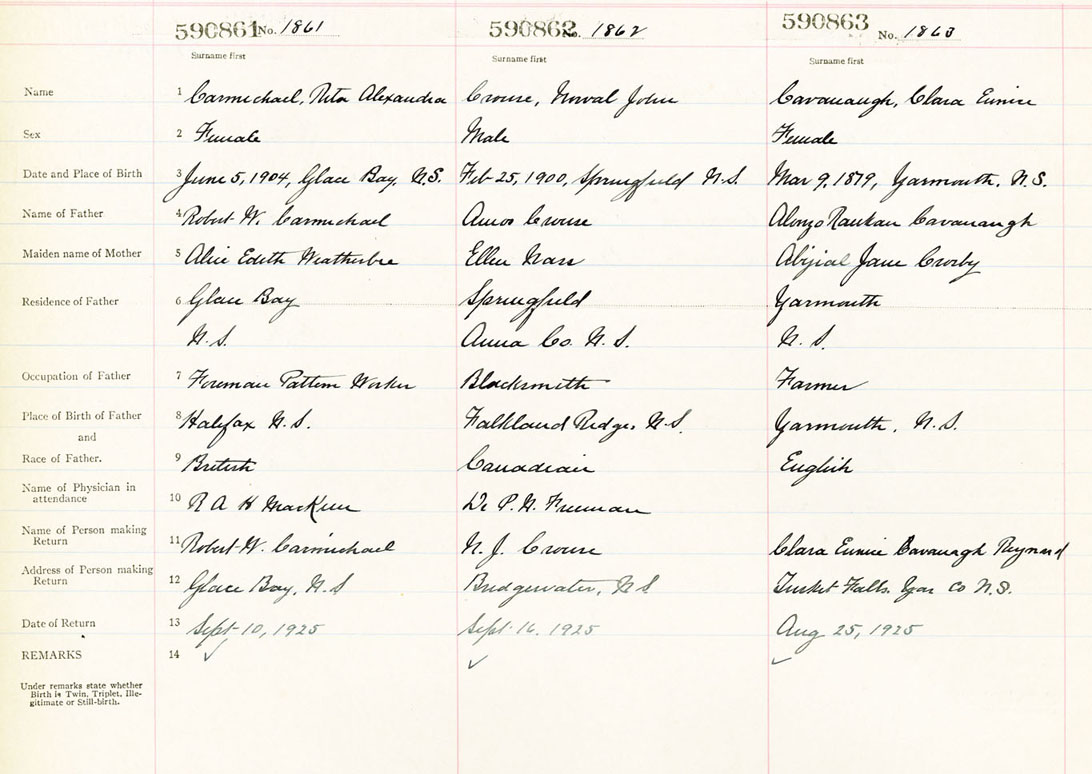 590861 No. 1861 590862 No. 1862 590863 No. 1863
Surname first Surname first Surname first
Name 1 Carmichael, Rita Alexandra Crouse, Norval John Cavanaugh, Clara Eunice
Sex 2 Female Male Female
Date and Place of Birth 3 June 5, 1904, Glace Bay, N.S. Feb 25, 1900, Springfield N.S. Mar 9, 1879, Yarmouth, N.S.
Name of Father 4 Robert W. Carmichael Amos Crouse Alonzo Cavanaugh
Maiden name of Mother 5 Alice Edith Weatherbee Ellen Jane Crosby
Residence of Father 6 Glace Bay Springfield Yarmouth
N.S. Anna Co. N.S. N.S.
Occupation of Father 7 Foreman Pattern Worker Blacksmith Farmer
Place of Birth of Father 8 Halifax N.S. Falkland Ridge, N.S. Yarmouth, N.S.
and
Race of Father. 9 British Canadian English
Name of Physician in
attendance 10 R A H MacKeen Dr P. N. Freeman
Name of Person making
Return 11 Robert W. Carmichael N. J. Crouse Clara Eunice Cavanagh Raynard
Address of Person making
Return 12 Glace Bay, N.S Bridgewater, N S Tusket Falls Yar Co N.S.
Date of Return 13 Sept 10, 1925 Sept. 16. 1925 Aug 25, 1925
REMARKS 14
Under remarks state whether
Birth is Twin, Triplet, Ille-
gitimate or Still-birth.